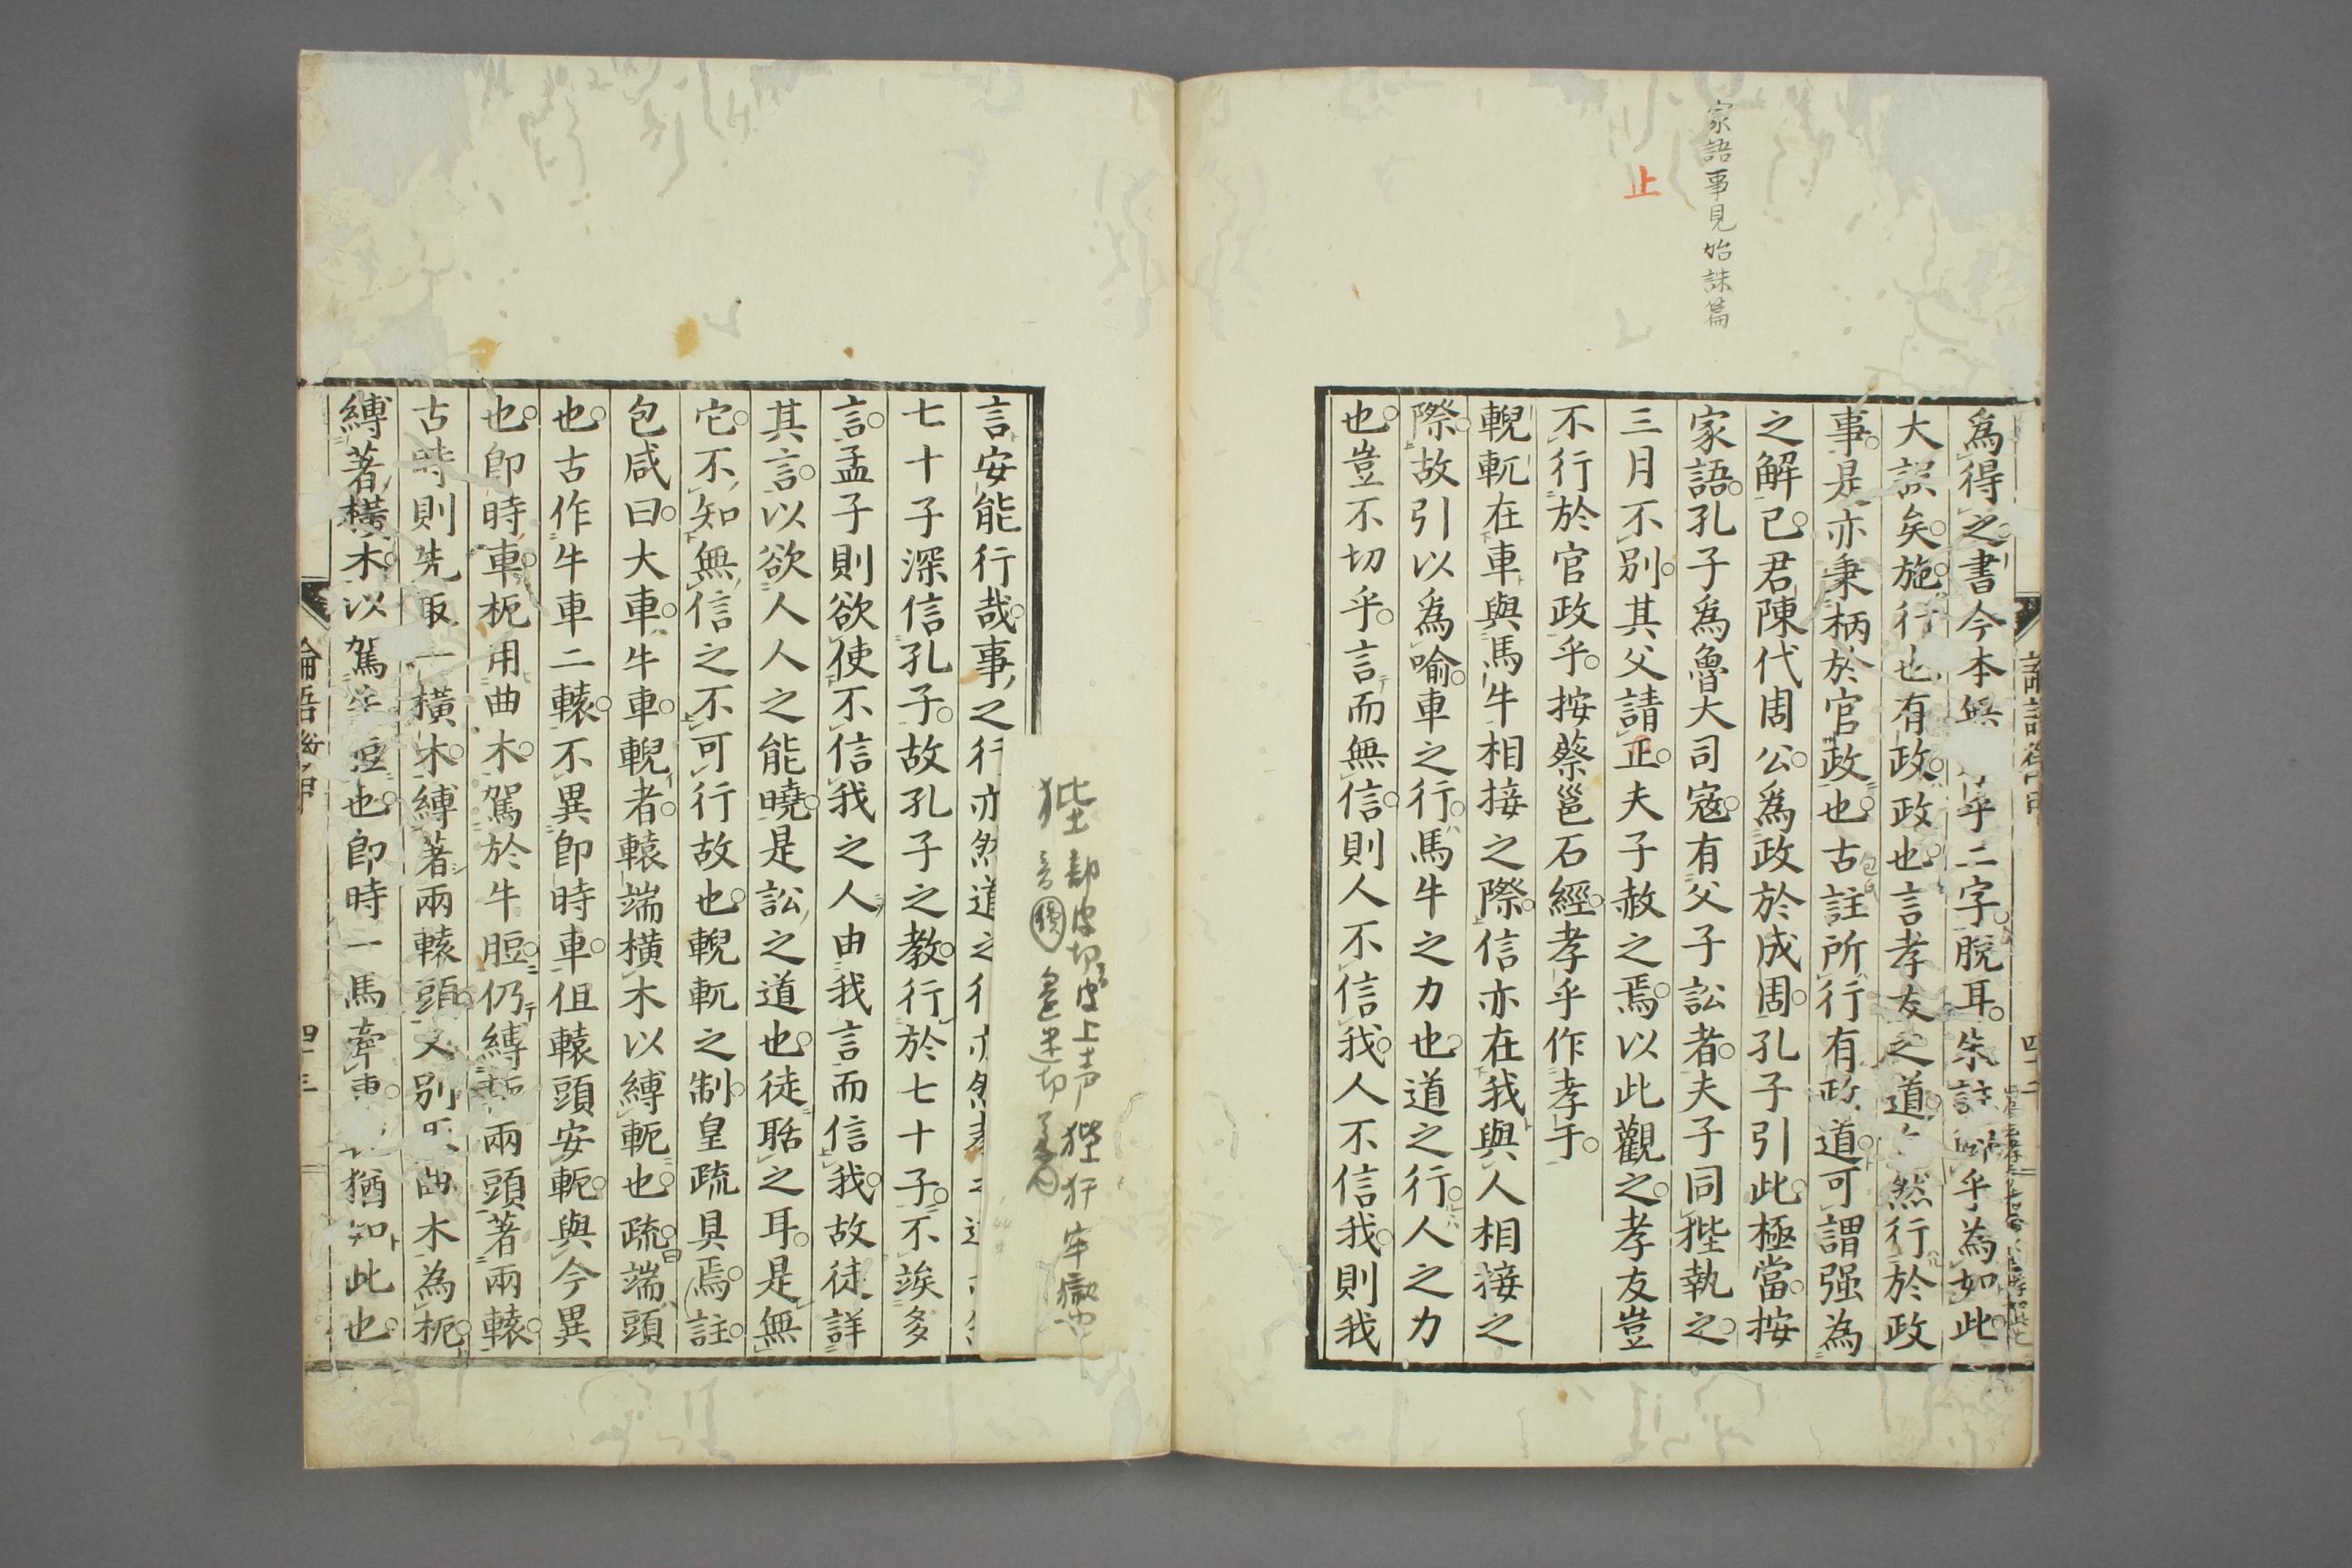 家語事見始誅篇
止
爲得之書今本無孝乎二字脫耳朱註
大誤矣施行也有政政也言孝友之道
事是亦秉柄於官政也古註所行有政道可謂强為
之解已君陳代周公爲政於成周孔子引此極當按
家語孔子爲魯大司寇有父子訟者夫子同狴執之
三月不別其父請正夫子赦之焉以此觀之孝友豈
不行於官政乎按蔡邕石經孝乎作孝于
輗軏在車與馬牛相接之際信亦在我與人相接之
際故引以爲喻車之行馬牛之力也道之行人之力
也豈不切乎言而無信則人不信我人不信我則我
狴 部皮切 皮上声 狴犴 牢獄也
言安能行哉事之行亦然道之行亦然
七十子深信孔子故孔子之教行於七十子不竢多
言孟子則欲使不信我之人由我言而信我故徒詳
其言以欲人人之能曉是訟之道也徒聒之耳是無
它不知無信之不可行故也輗軏之制皇疏具焉註
包咸曰大車牛車輗者轅端橫木以縛軛也疏端頭
也古作牛車二轅不異卽時車但轅頭安軛與今異
也卽時車枙用曲木駕於牛脰仍縛枙兩頭著兩轅
古時則先取一橫木縛著兩轅頭又別取曲木為枙
縛著橫木以駕牛脰也卽時一馬牽車猶如此也